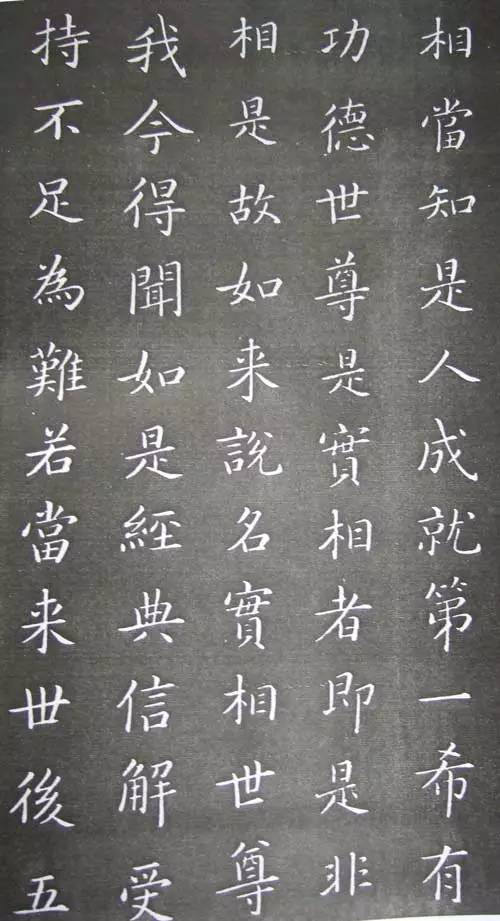 相當知是人成就第一希有
功德世尊是實相者即是非
相是故如来說名實相世尊
我今得聞如是經典信解受
持不足為難若當来世後五